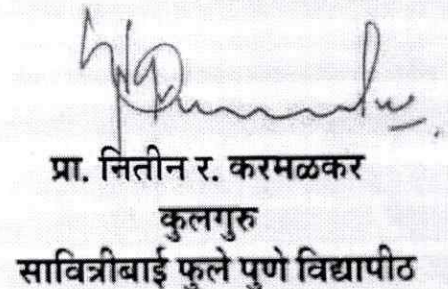 प्रा. नितीन र. करमळकर
कुलगुरु
सावित्रीबाई फुले पुणे विद्यापीठ